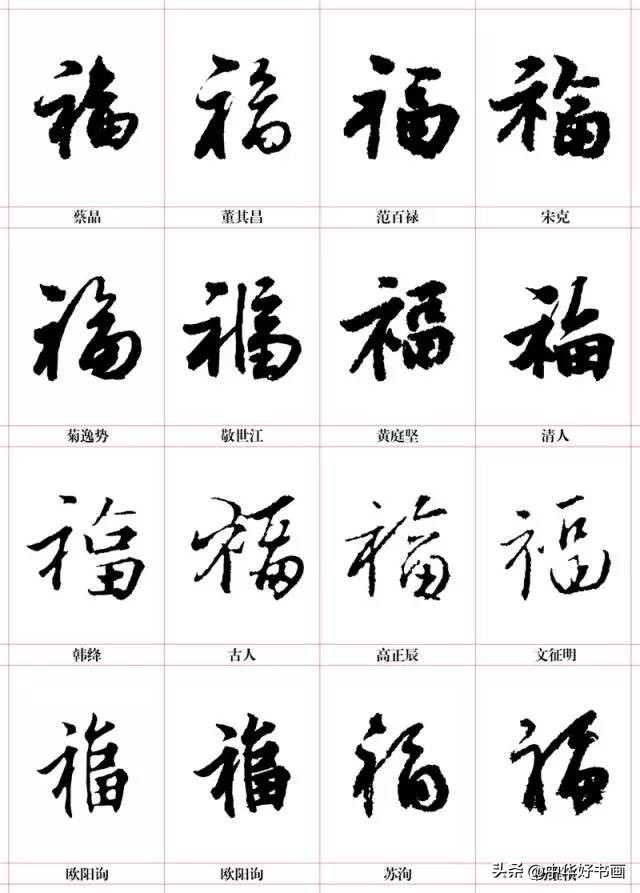 福 福 福 福
蔡晶 董其昌 范百禄 宋克
福 福 福 福
菊逸势 敬世江 黄庭坚 清人
福 福 福 福
韩绛 古人 高正辰 文征明
福 福 福 福
欧阳询 欧阳询 苏洵
头条 @中华好书画